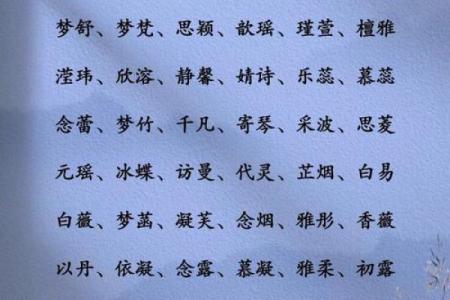 梦舒、梦梵、思颖、歆瑶、瑾萱、檀雅
滢玮、欣溶、静馨、婧诗、乐蕊、慕蕊
念蕾、梦竹、千凡、寄琴、采波、思菱
元瑶、冰蝶、访曼、代灵、芷烟、白易
白薇、梦菡、凝芙、念烟、雅彤、香薇
以丹、依凝、念露、慕凝、雅柔、初露